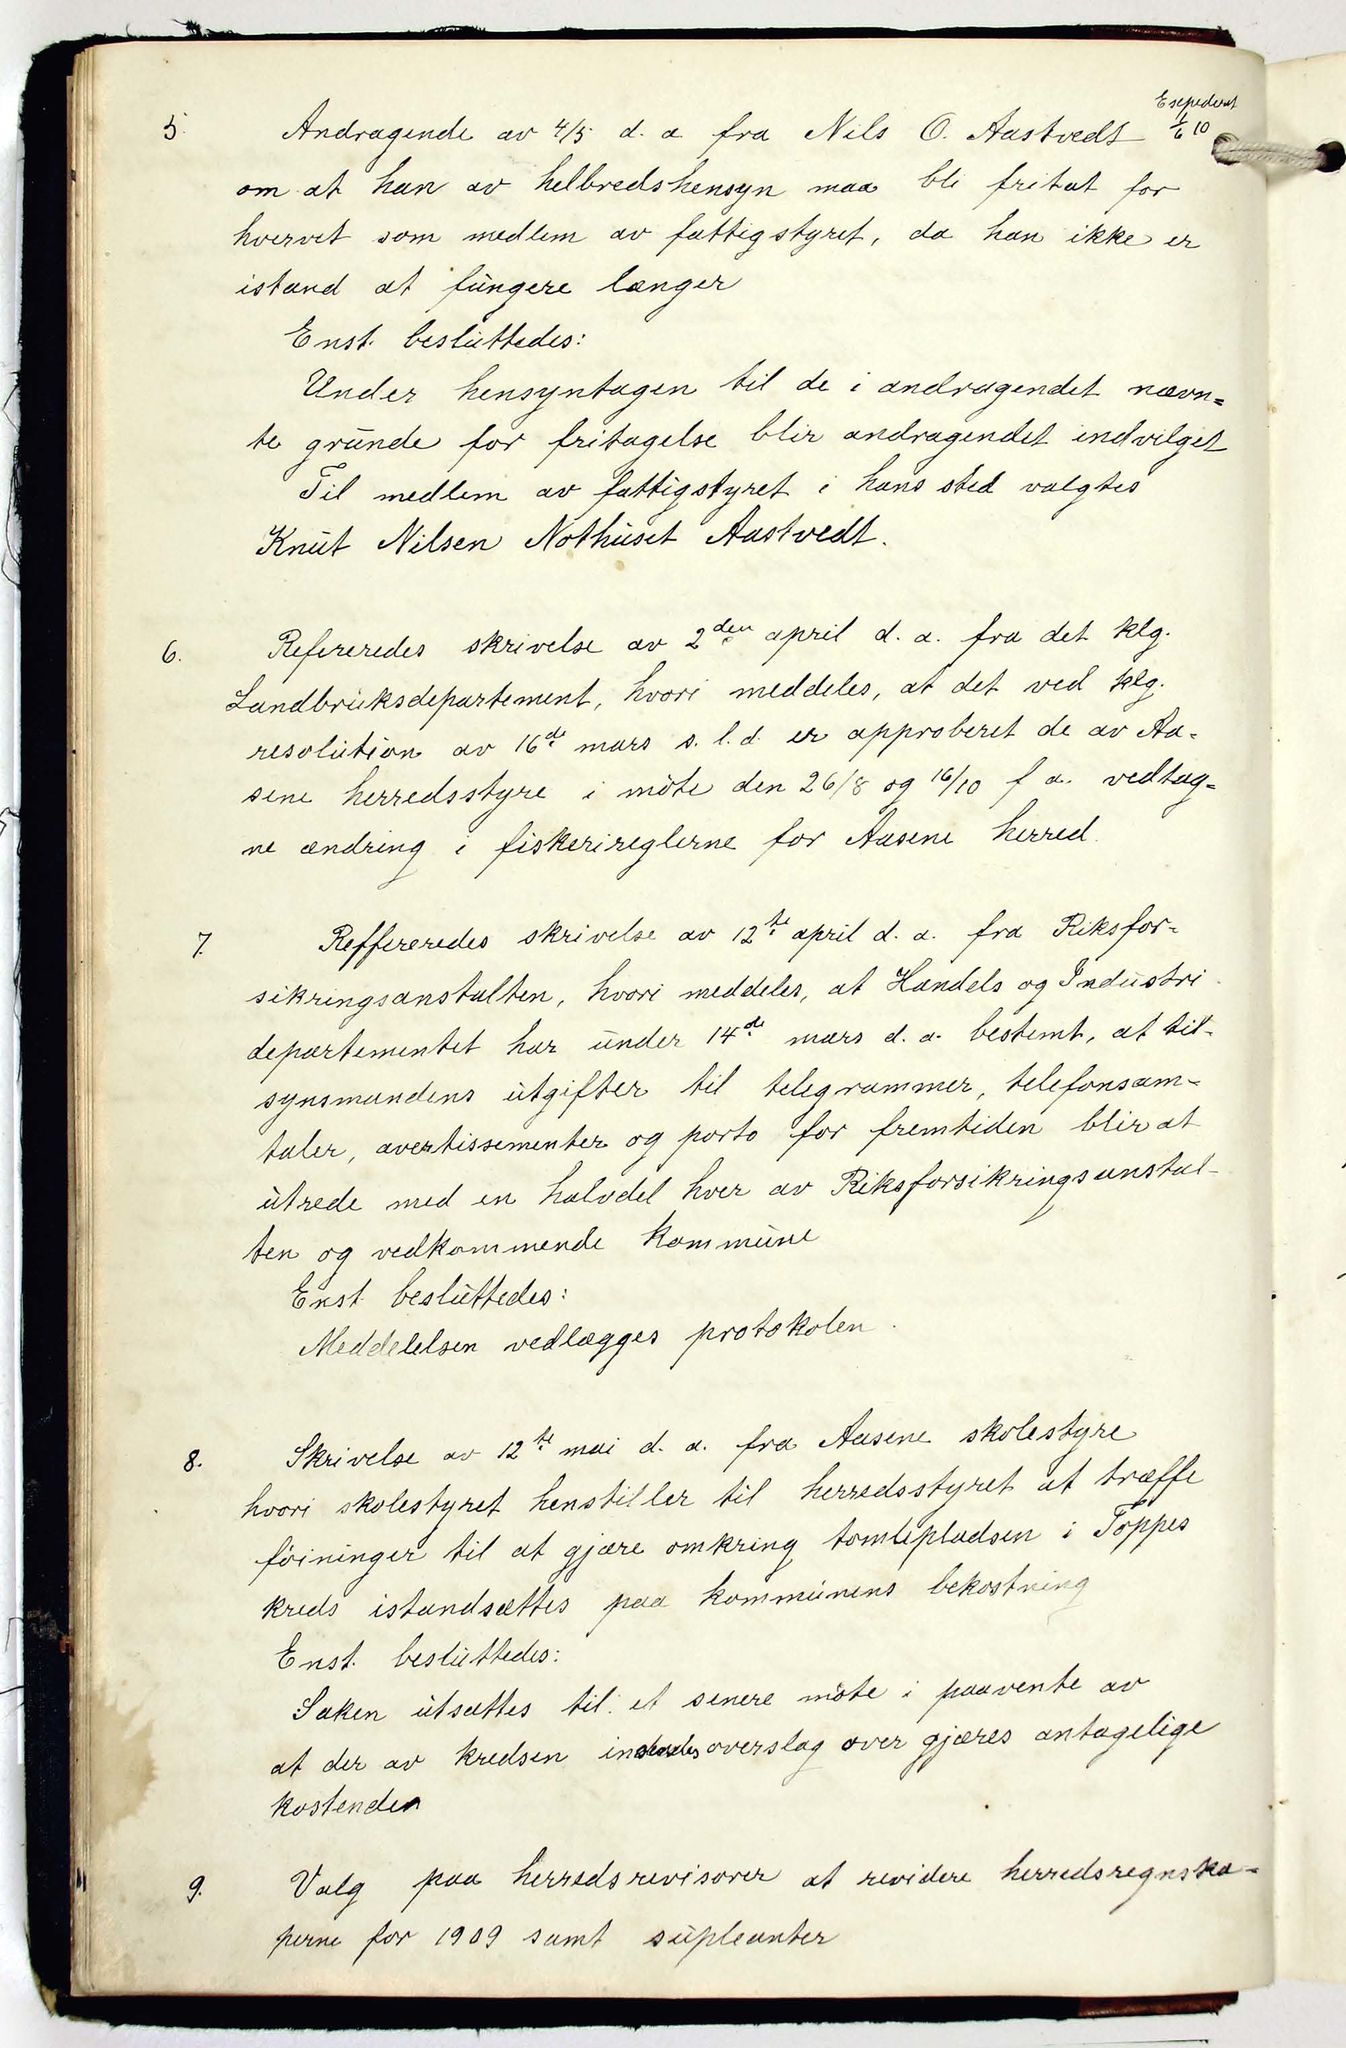 Expederet
1/6 10
5. Andragende av 4/5 d. a fra Nils O. Aastvedt
om at han av helbredshensyn maa bli fritat for
hvervet som medlem av fattigstyret, da han ikke er
istand at fungere længer
Enst. besluttedes:
Under hensyntagen til de i andragendet nævn=
te grunde for fritagelse blir andragendet indvilget
Til medlem av fattigstyret i hans sted valgtes
Knut Nilsen Nothuset Aastvedt.
6. Refereredes skrivelse av 2den april d. a. fra det klg.
Landbruksdepartement, hvori meddeles, at det ved klg.
resolution av 16de mars s. l. d. er approberet de av Aa=
sene herredsstyre i möte den 26/8 og 16/10 f a. vedtag=
ne ændring i fiskerireglerne for Aasene herred.
7. Reffereredes skrivelse av 12te april d. a. fra Riksfor=
sikringsanstalten, hvori meddeles, at Handels og Industri
departementet har under 14de mars d. a. bestemt, at til-
synsmandens utgifter til telegrammer, telefonsam-
taler, avertissementer og porto for fremtiden blir at
utrede med en halvdel hver av Riksforsikringsanstal-
ten og vedkommende kommune
Enst besluttedes:
Meddelelsen vedlægges protokolen.
8. Skrivelse av 12te mai d. a. fra Aasene skolestyre
hvori skolestyret henstiller til herredsstyret at træffe
föininger til at gjære omkring tomtepladsen i Toppes
kreds istandsættes paa kommunens bekostning
Enst. besluttedes:
Saken utsættes til et senere möte i paavente av
at der av kredsen indsendes overslag over gjæres antagelige
kostender
9. Valg paa herredsrevisorer at revidere herredsregnska=
perne for 1909 samt supleanter